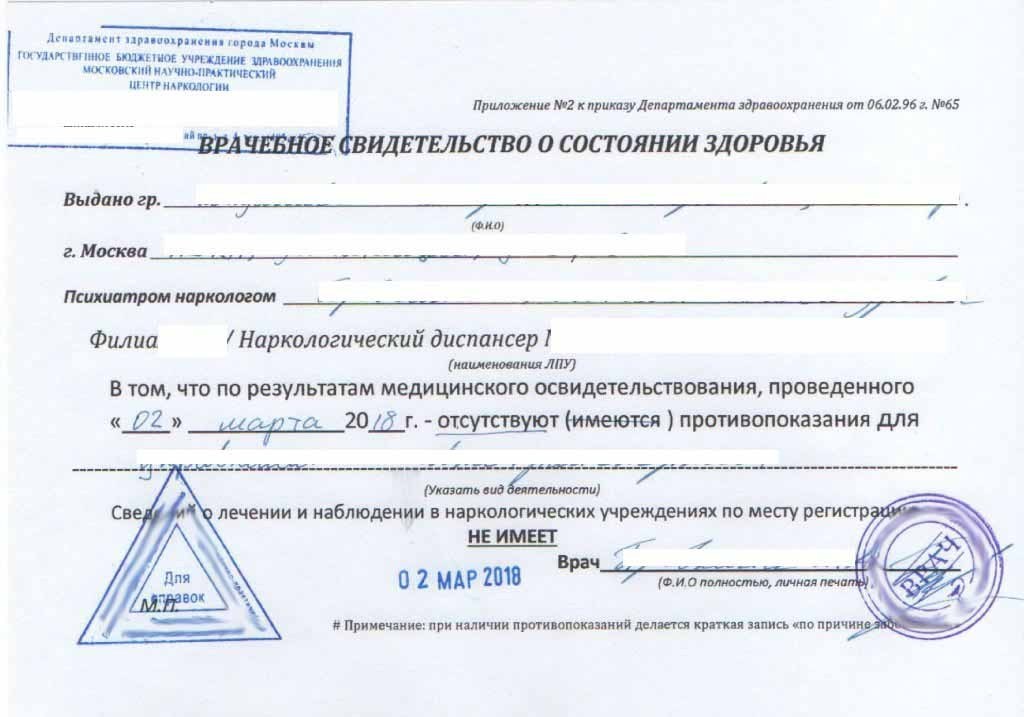 Департамент здравоохранения города Москвы
ГОСУДАРСТВЕННОЕ БЮДЖЕТНОЕ УЧРЕЖДЕНИЕ ЗДРАВООХРАНЕНИЯ
МОСКОВСКИЙ НАУЧНО-ПРАКТИЧЕСКИЙ
ЦЕНТР НАРКОЛОГИИ
Приложение №2 к приказу Департамента здравоохранения от 06.02.96 г. №65
ВРАЧЕБНОЕ СВИДЕТЕЛЬСТВО О СОСТОЯНИИ ЗДОРОВЬЯ
Выдано гр. .
(Ф.И.О)
г. Москва
Психиатром наркологом
Филиа / Наркологический диспансер
(наименования ЛПУ)
В том, что по результатам медицинского освидетельствования, проведенного
« 02 » марта 2018 г. - отсутствуют (имеются ) противопоказания для
(Указать вид деятельности)
о лечении и наблюдении в наркологических учреждениях по месту регистрации
НЕ ИМЕЕТ
Врач
02 МАР 2018
(Ф.И.О полностью, личная печать)
ВРАЧ
Для
справок
М.П.
# Примечание: при наличии противопоказаний делается краткая запись «по причине